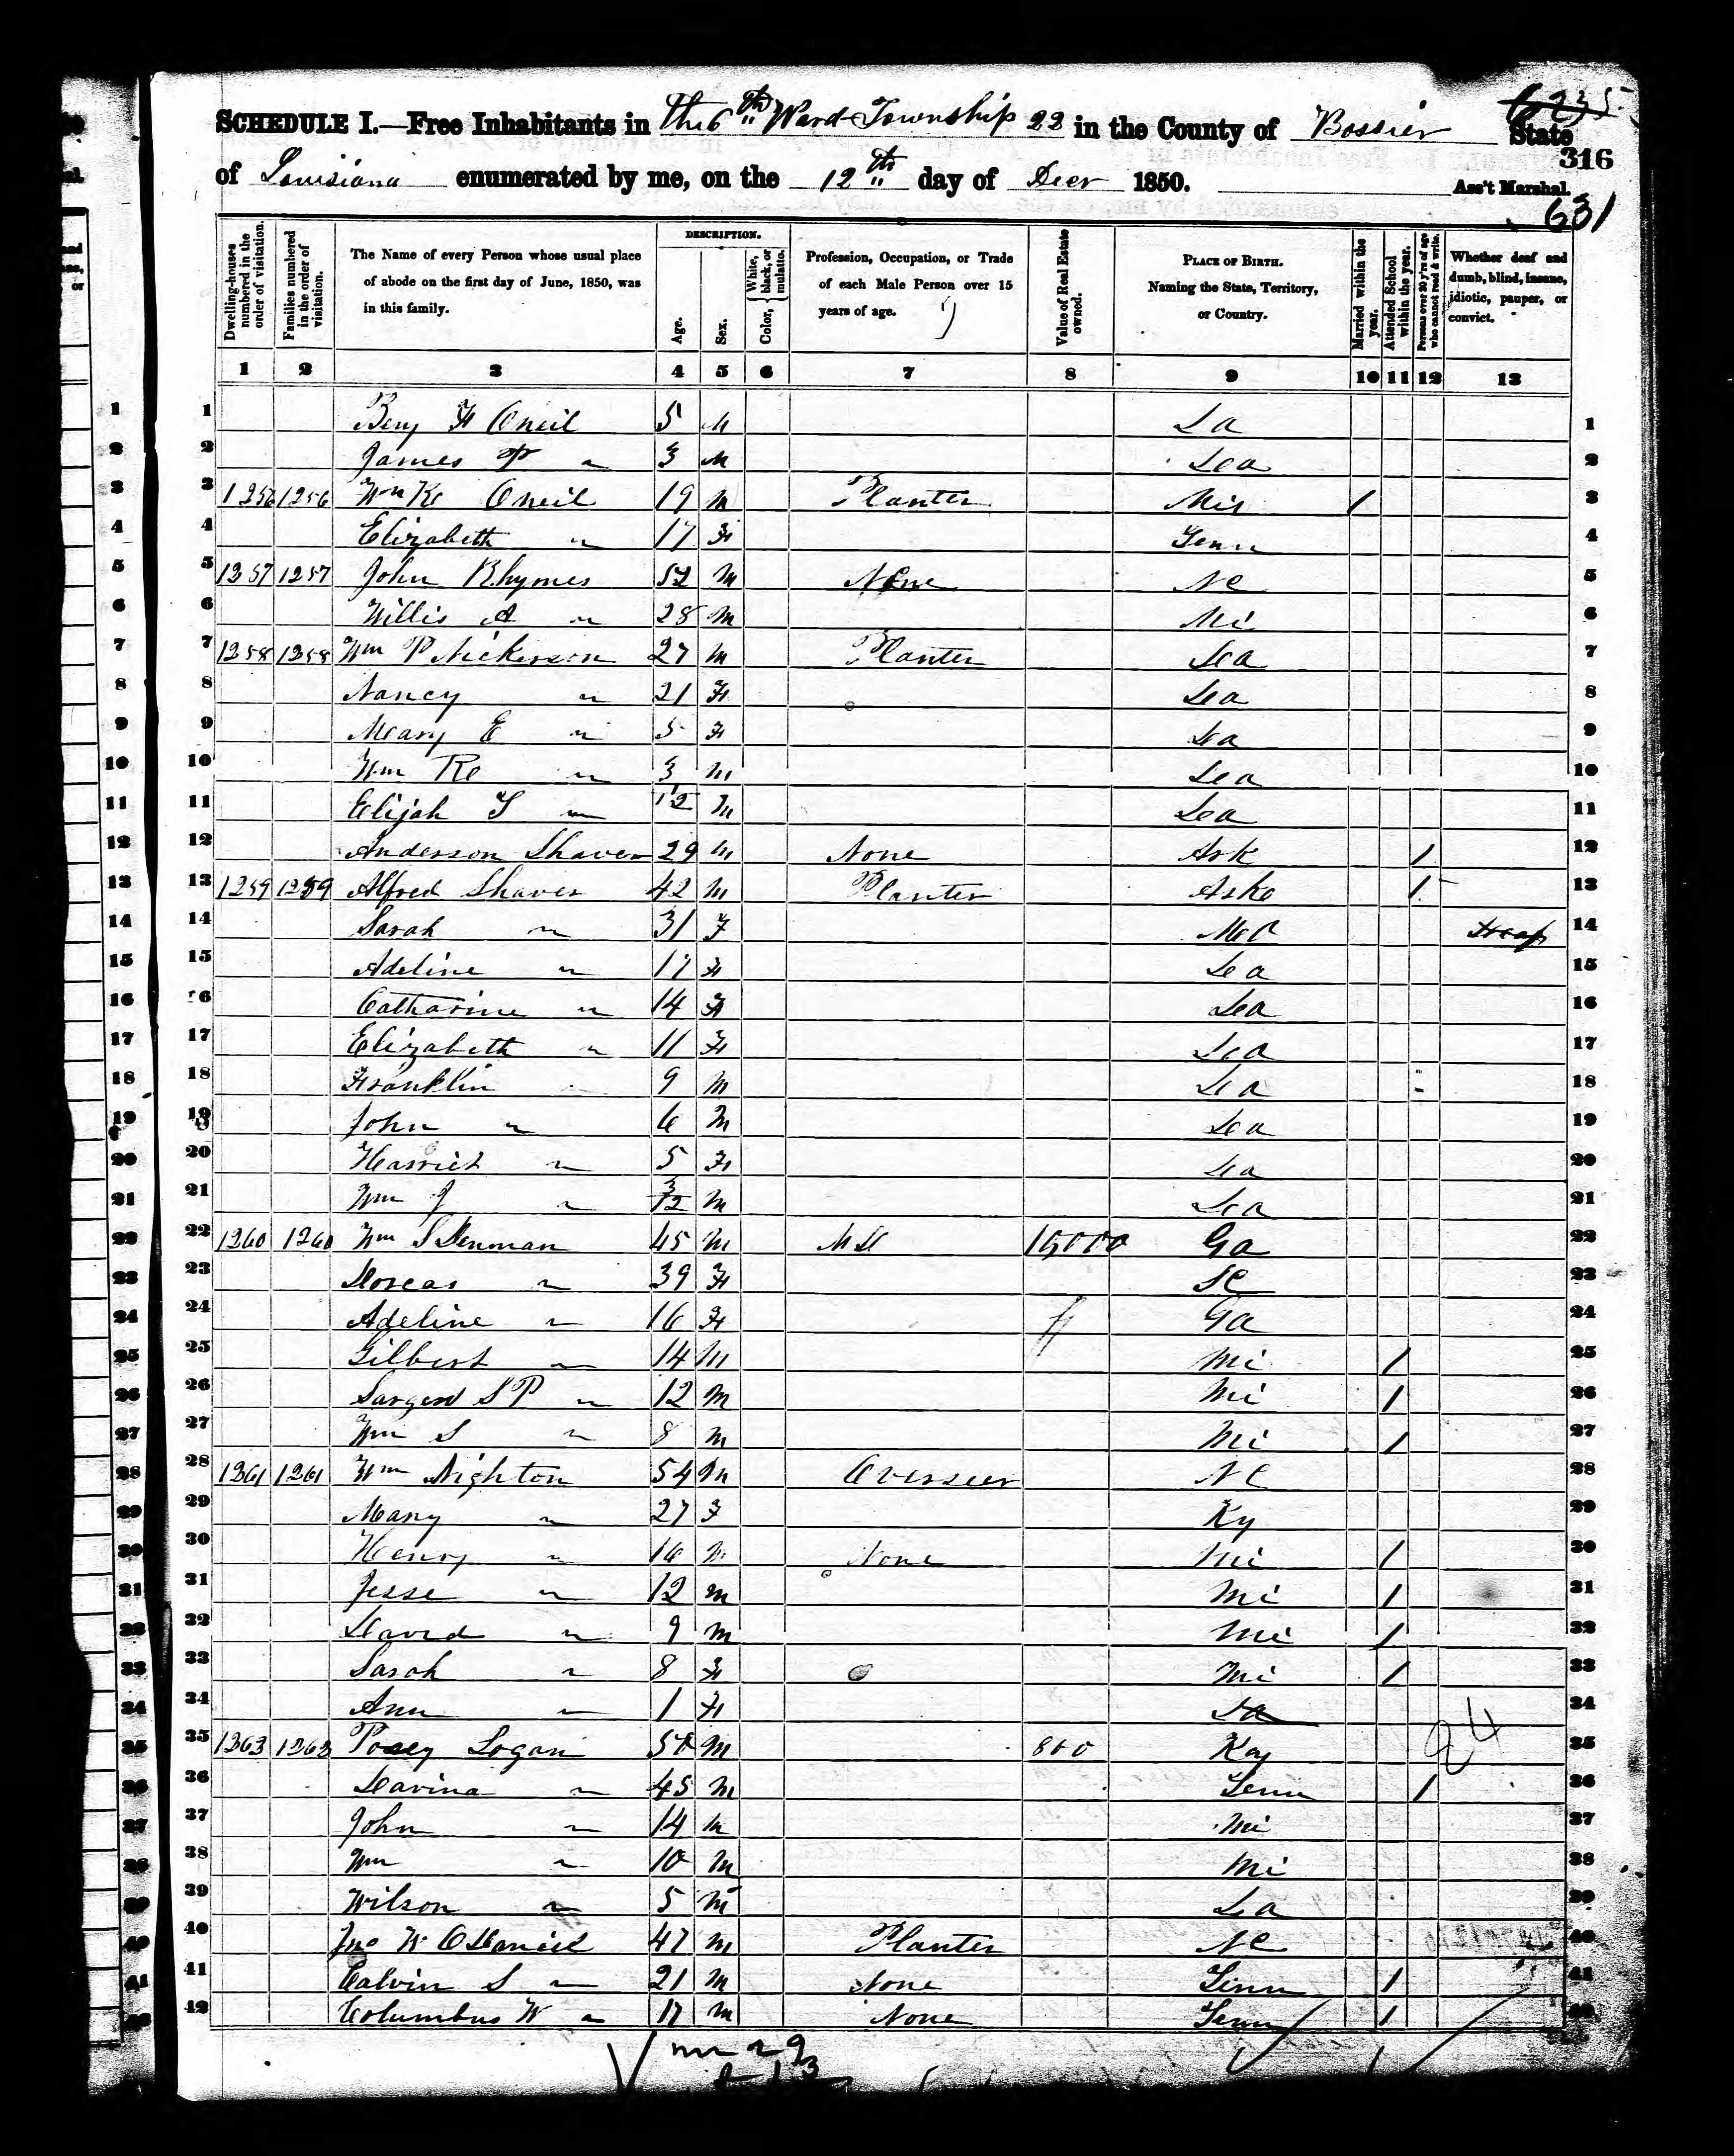 6235
SCHEDULE I.—Free Inhabitants in The 6th Ward Township 22 in the County of Bossier State
316
of Louisiana enumerated by me, on the 12th day of Decr 1850. Ass't Marshal.
631
Dwelling-houses numbered in the order of visitation.
Families numbered in the order of visitation.
The Name of every Person whose usual place of abode on the first day of June, 1850, was in this family.
DESCRIPTION.
Age.
Sex.
Color, { White, black, or mulatto.
Profession, Occupation, or Trade of each Male Person over 15 years of age.
Value of Real Estate owned.
PLACE OF BIRTH. Naming the State, Territory, or Country.
Married within the year.
Attended School within the year.
Persons over 20 y'rs of age who cannot read & write.
Whether deaf and dumb, blind, insane, idiotic, pauper, or convict.
1 2 3 4 5 6 7 8 9 10 11 12 13
1 Benj F Oneil 5 M La 1
2 James P " 3 M Lea 2
3 1256 1256 Wm R Oneil 19 M Planter Mis / 3
4 Elizabeth " 17 F Tenn 4
5 1257 1257 John Rhymes 52 M None NC 5
6 Willis A " 28 M Mi 6
7 1258 1258 Wm P Nickerson 27 M Planter Lea 7
8 Nancy " 21 F Lea 8
9 Mary E " 5 F Lea 9
10 Wm R " 3 M Lea 10
11 Elijah T " 1/12 M Lea 11
12 Anderson Shaver 29 M None Ark / 12
13 1259 1259 Alfred Shaver 42 M Planter Ark / 13
14 Sarah " 31 F 14
15 Adeline " 17 F Lea 15
16 Catharine " 14 F Lea 16
17 Elizabeth " 11 F Lea 17
18 Franklin 9 M Lea 18
19 John " 6 M Lea 19
20 Harriet " 5 F Lea 20
21 Wm J " 3/12 M Lea 21
22 1260 1260 Wm S Denman 45 M MD 15000 Ga 22
23 Dorcas " 39 F SC 23
24 Adeline " 16 F Ga 24
25 Gilbert " 14 M Mi / 25
26 Sargent S P " 12 M Mi / 26
27 Wm S " 8 M Mi / 27
28 1261 1261 Wm Nighton 54 M Overseer NC 28
29 Mary " 27 F Ky 29
30 Henry " 16 M None Mi / 30
31 Jesse " 12 M Mi / 31
32 David " 9 M Mi / 32
33 Sarah " 8 F Mi / 33
34 Ann " 1 F La 34
35 1263 1263 Posey Logan 50 M 800 Ky 24 35
36 Davina " 45 M Tenn / 36
37 John " 14 M Mi 37
38 Wm " 10 M Mi 38
39 Wilson " 5 M La 39
40 Jno W ODaniel 47 M Planter NC 40
41 Calvin S " 21 M None Tenn / 41
42 Columbus W " 17 M None Tenn /
m 29
f 13